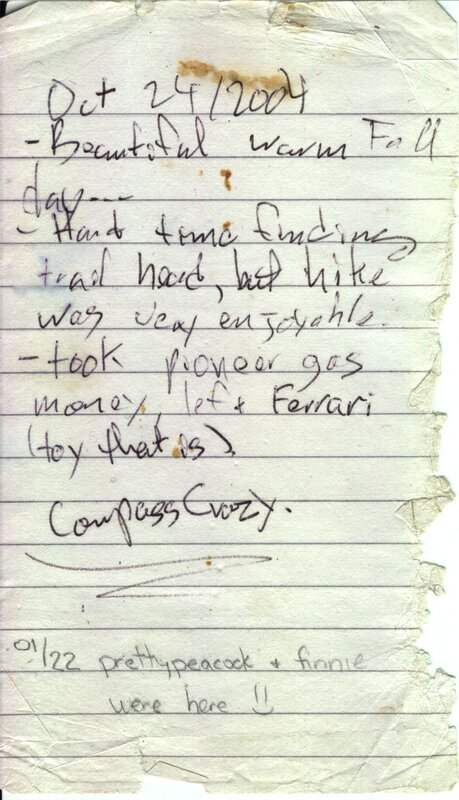 Oct 24/2004
- Beautiful warm Fall
day---
- Hard time finding
trail head, but hike
was very enjoyable.
- took pioneer gas
money, left Ferrari
(toy that is).
CompassCrazy.
01/22 prettypeacock + finnie
were here !!